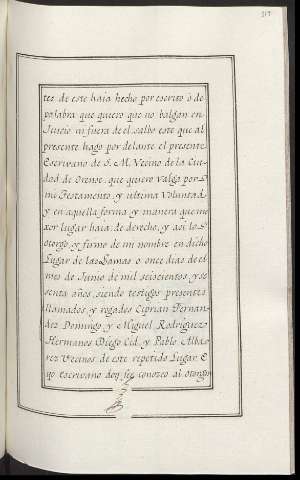 217
tes de este haia hecho por escrito ò de
palabra que quiero que no balgan en
Juicio ni fuera de el salbo este que al
presente hago por delante el presente
Escrivano de S. M. Vecino de la Ciu-
dad de Orense, que quiero valga por
mi Testamento, y ultima Voluntad
y en aquella forma y manera que me
xor lugar haia de derecho, y asi lo
otorgo y formo de mi nombre en dicho
Lugar de las Lamas o once dias de el
mes de Junio de mil seiscientos, y se
senta años, siendo testigos presentes
llamados, y rogados Ciprian Fernan-
dez Domingo, y Miguel Rodriguez
Hermanos Diego Cid, y Pablo Alba
rez Vecinos de este repetido Lugar E
yo escrivano doy fee conozco al otorgan